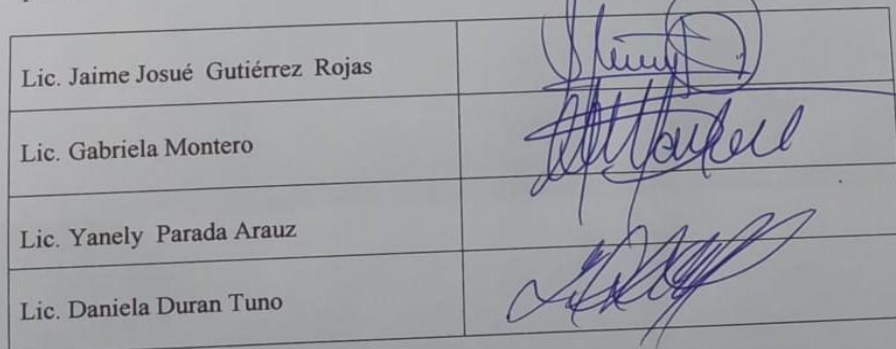 Lic. Jaime Josué Gutiérrez Rojas
Lic. Gabriela Montero
Lic. Yanely Parada Arauz
Lic. Daniela Duran Tuno